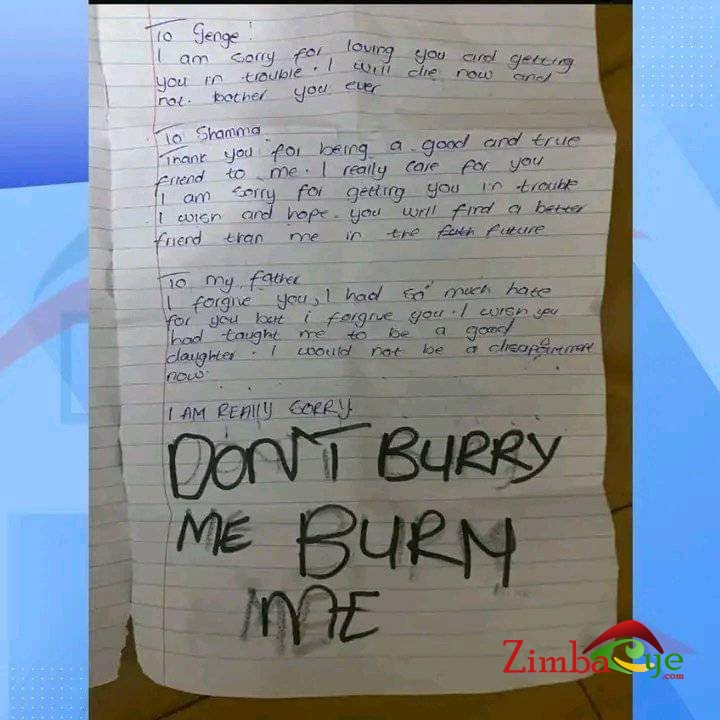 To Genge!
I am sorry for loving you and getting
you in trouble. I will die now and
not bother you ever
To Shamma.
Thank you for being a good and true
friend to me. I really care for you
I am sorry for getting you in trouble
I wish and hope you will find a better
friend than me in the future
To my father
I forgive you, I had so much hate
for you but i forgive you. I wish you
had taught me to be a good
daughter. I would not be a disappointment
now.
I AM REALLY SORRY.
DON'T BURRY
ME BURN
ME
ZimbaEye
.com